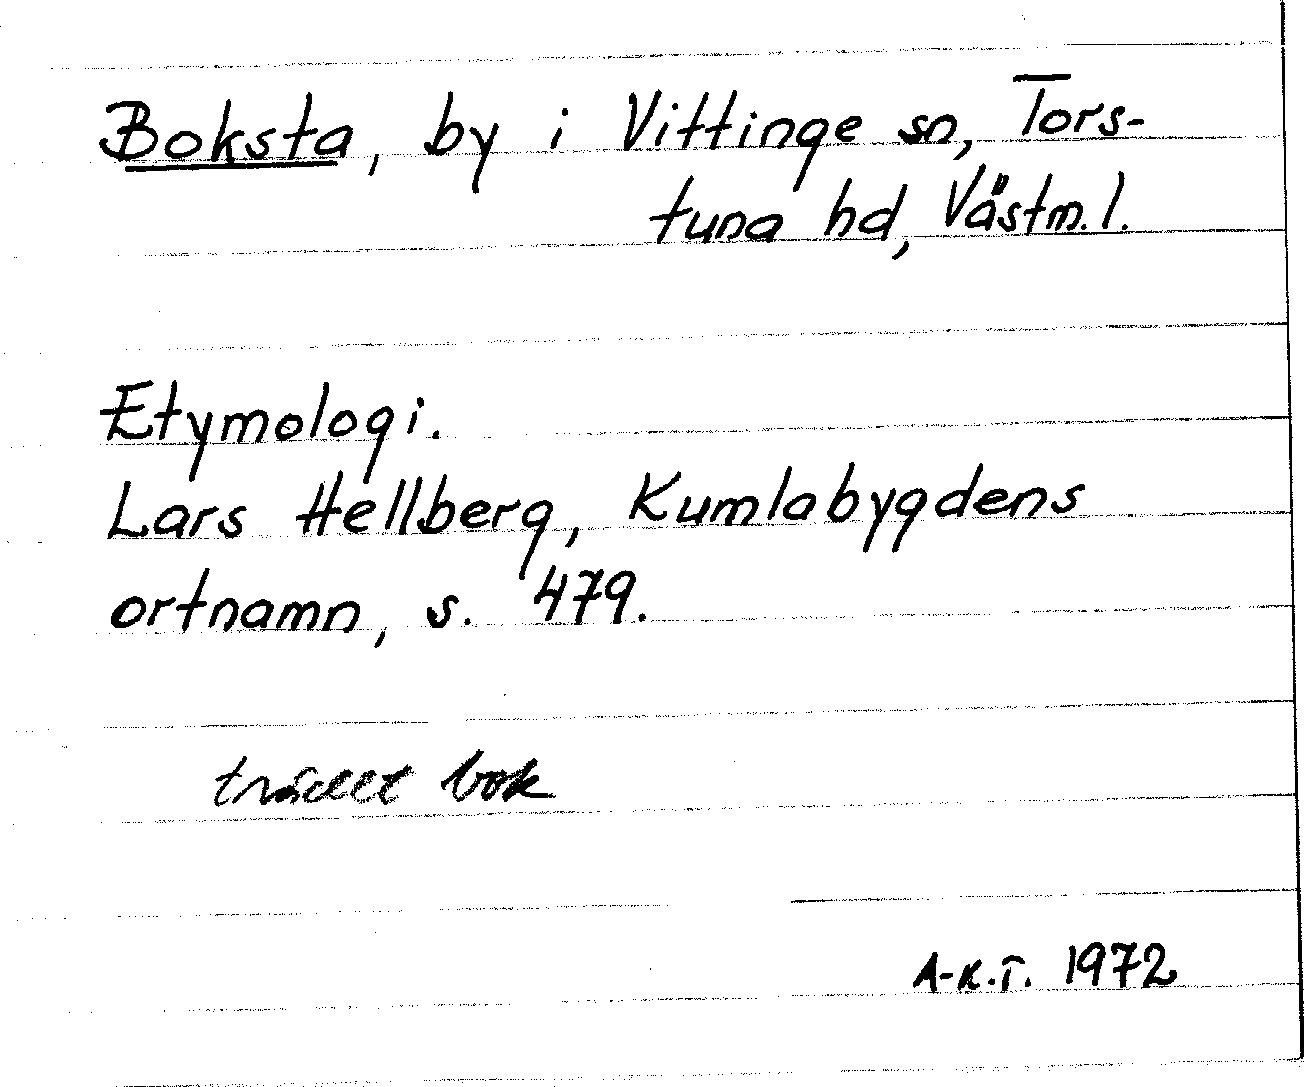 Boksta, by i Vittinge sn, Tors-
tuna hd, Västm.l.
Etymologi.
Lars Hellberg, Kumlabygdens
ortnamn, s. 479.
trädet bok
A-K.T. 1972